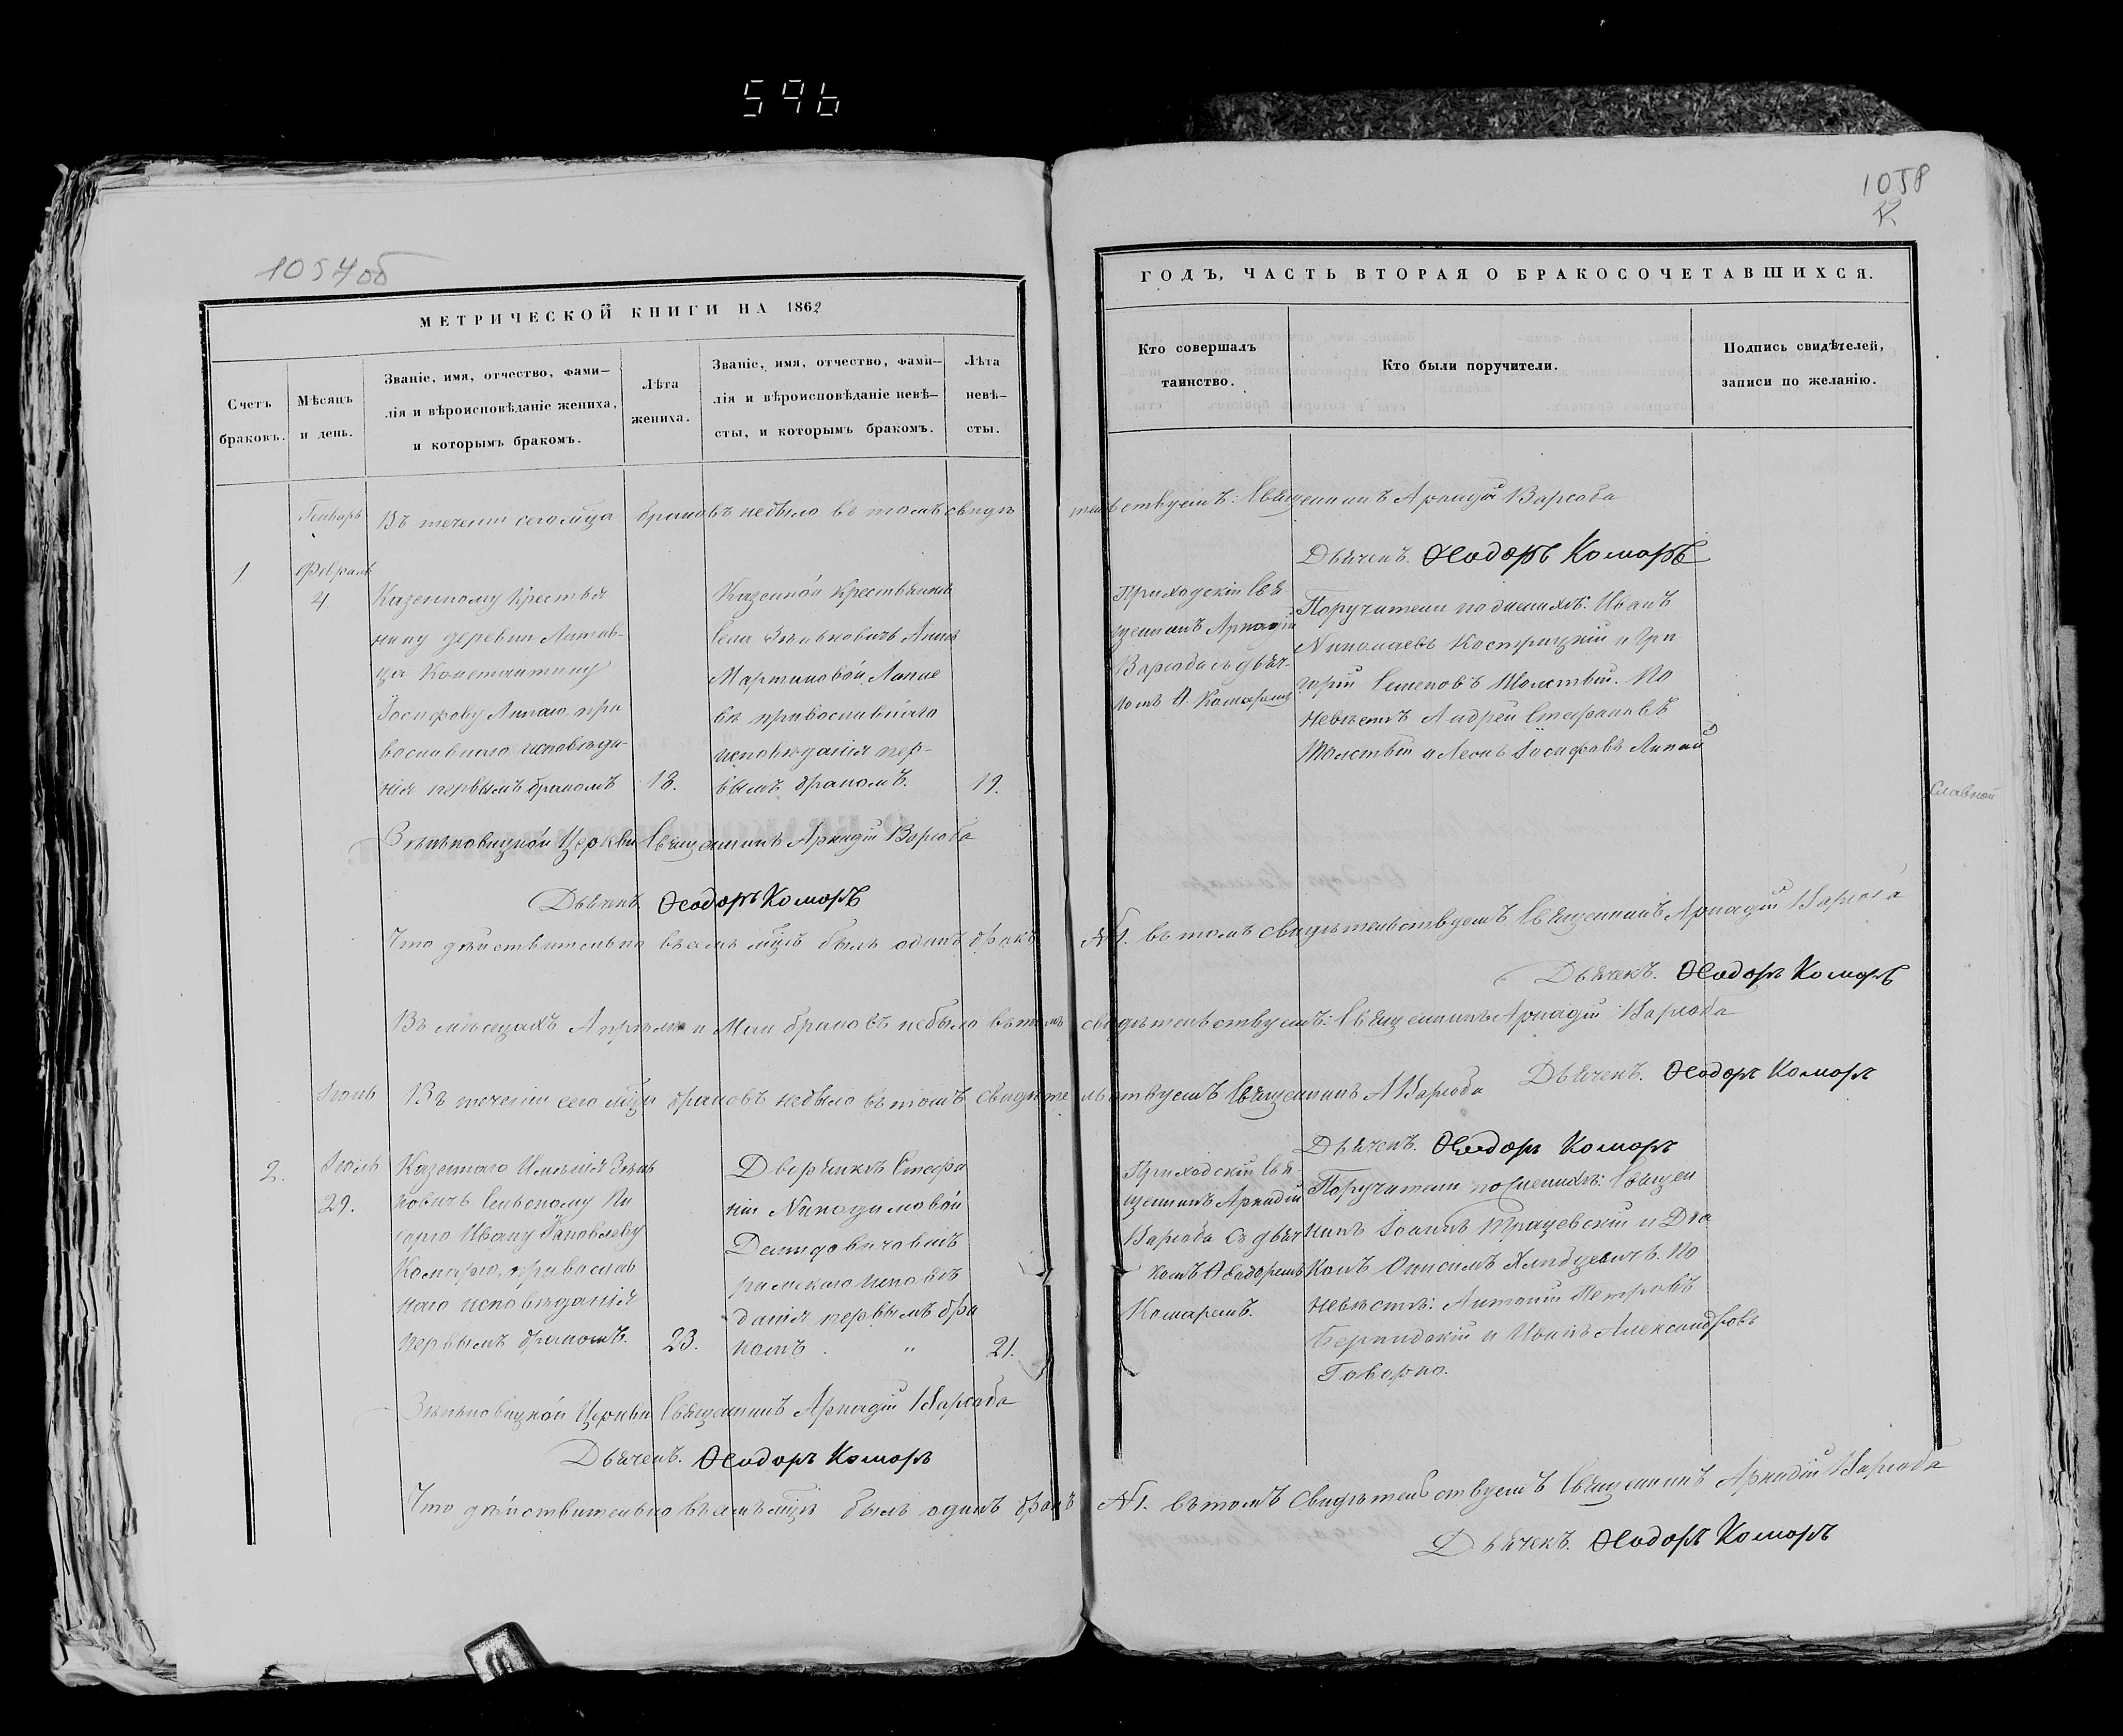 596
1054об
1058
МЕТРИЧЕСКОЙ КНИГИ НА 1862
ГОДЪ, ЧАСТЬ ВТОРАЯ О БРАКОСОЧЕТАВШИХСЯ.
Счетъ
браковъ.
Мѣсяцъ
и день.
Званіе, имя, отчество, фами—
лія и вѣроисповѣданіе жениха,
и которымъ бракомъ.
Лѣта
жениха.
Званіе, имя, отчество, фами—
лія и вѣроисповѣданіе невѣ—
сты, и которымъ бракомъ.
Лѣта
невѣ—
сты.
Кто совершалъ
таинство.
Кто были поручители.
Подпись свидѣтелей,
записи по желанію.
Генварь
Въ теченіи сего мѣца браковъ небыло въ томъ свидѣтельствуемъ: Священникъ Аркадій Варгоба
Дьячекъ. Ѳеодоръ Комаръ
1
Февраль
4
Казенному Крестья
нину деревни
Константину
Іосифову Липаю пра
вославнаго исповѣда-
нія первымъ бракомъ
18.
Казенной Крестьянкѣ
Села Зеньковичъ Аннѣ
Мартиновой
православнаго
исповѣданія пер-
вымъ бракомъ.
19.
Приходскій Свя
щенникъ Аркадій
Варгоба съ дьяч-
комъ Ѳ. Комаремъ
Поручители по женихѣ: Иванъ
Николаевъ Кострицкій и Гри
горій Семеновъ Толстый. По
невѣстѣ Андрей Стефановъ
Толстый и Леонъ Іосифовъ Липай
славной
Церкви Священникъ Аркадій Варгоба
Дьячекъ. Ѳеодоръ Комаръ
Что дѣйствительно въ семъ мѣцѣ былъ одинъ бракъ №1. въ томъ свидѣтельствуемъ Священникъ Аркадій Варгоба
Дьячекъ. Ѳеодоръ Комаръ
Въ мѣсяцахъ Апрѣлѣ и Маи браковъ небыло въ томъ свидѣтельствуемъ: Священникъ Аркадій Варгоба
Дьячекъ. Ѳеодоръ Комаръ
Іюнь
Въ теченіи сего мѣца браковъ небыло въ томъ свидѣтельствуемъ Священникъ А Варгоба
Дьячекъ. Ѳеодоръ Комаръ
2.
Іюль
29.
Казеннаго Имѣнія Зень
ковичъ Сельскому Пи
сарю Ивану Іаковлеву
Комарю, православ
наго исповѣданія
первымъ бракомъ.
23.
Дворянкѣ Стефа
ніи Никодимовой
Демидовичовнѣ
римскаго исповѣ
данія первымъ бра
комъ. „
21.
Приходскій Свя
щенникъ Аркадій
Варгоба съ дьяч
комъ Ѳеодоремъ
Комаремъ.
Поручители по женихѣ: Священ
никъ Іоаннъ и Дьа
конъ Онисимъ По
невѣстѣ: Антоній Петровъ
и Иванъ Александровъ
Говорко.
Церкви Священникъ Аркадій Варгоба
Дьячекъ. Ѳеодоръ Комаръ
Что дѣйствительно въ семъ мѣцѣ былъ одинъ бракъ №1. въ томъ свидѣтельствуемъ Священникъ Аркадій Варгоба
Дьячекъ. Ѳеодоръ Комаръ